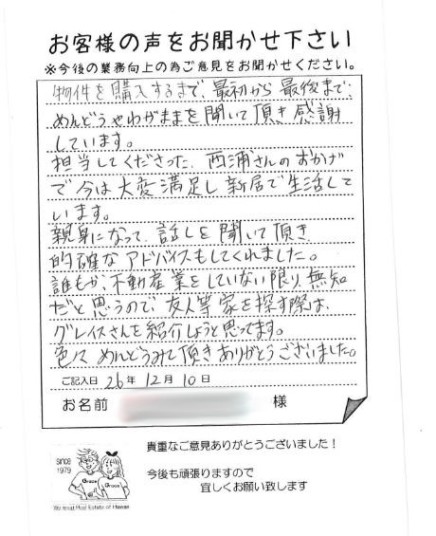 お客様の声をお聞かせ下さい
※今後の業務向上の為ご意見をお聞かせください。
物件を購入するまで、最初から最後まで、
めんどうやわがままを聞いて頂き感謝
しています。
担当してくださった、西浦さんのおかげ
で今は大変満足し新居で生活して
います。
親身になって、話しを聞いて頂き
的確なアドバイスもしてくれました。
誰もが、不動産業をしていない限り、無知
だと思うので、友人等家を探す際は、
グレイスさんを紹介しようと思ってます。
色々めんどうみて頂きありがとうございました。
ご記入日 26年 12月 10日
お名前 様
貴重なご意見ありがとうございました！
今後も頑張りますので
宜しくお願い致します
Since
1979